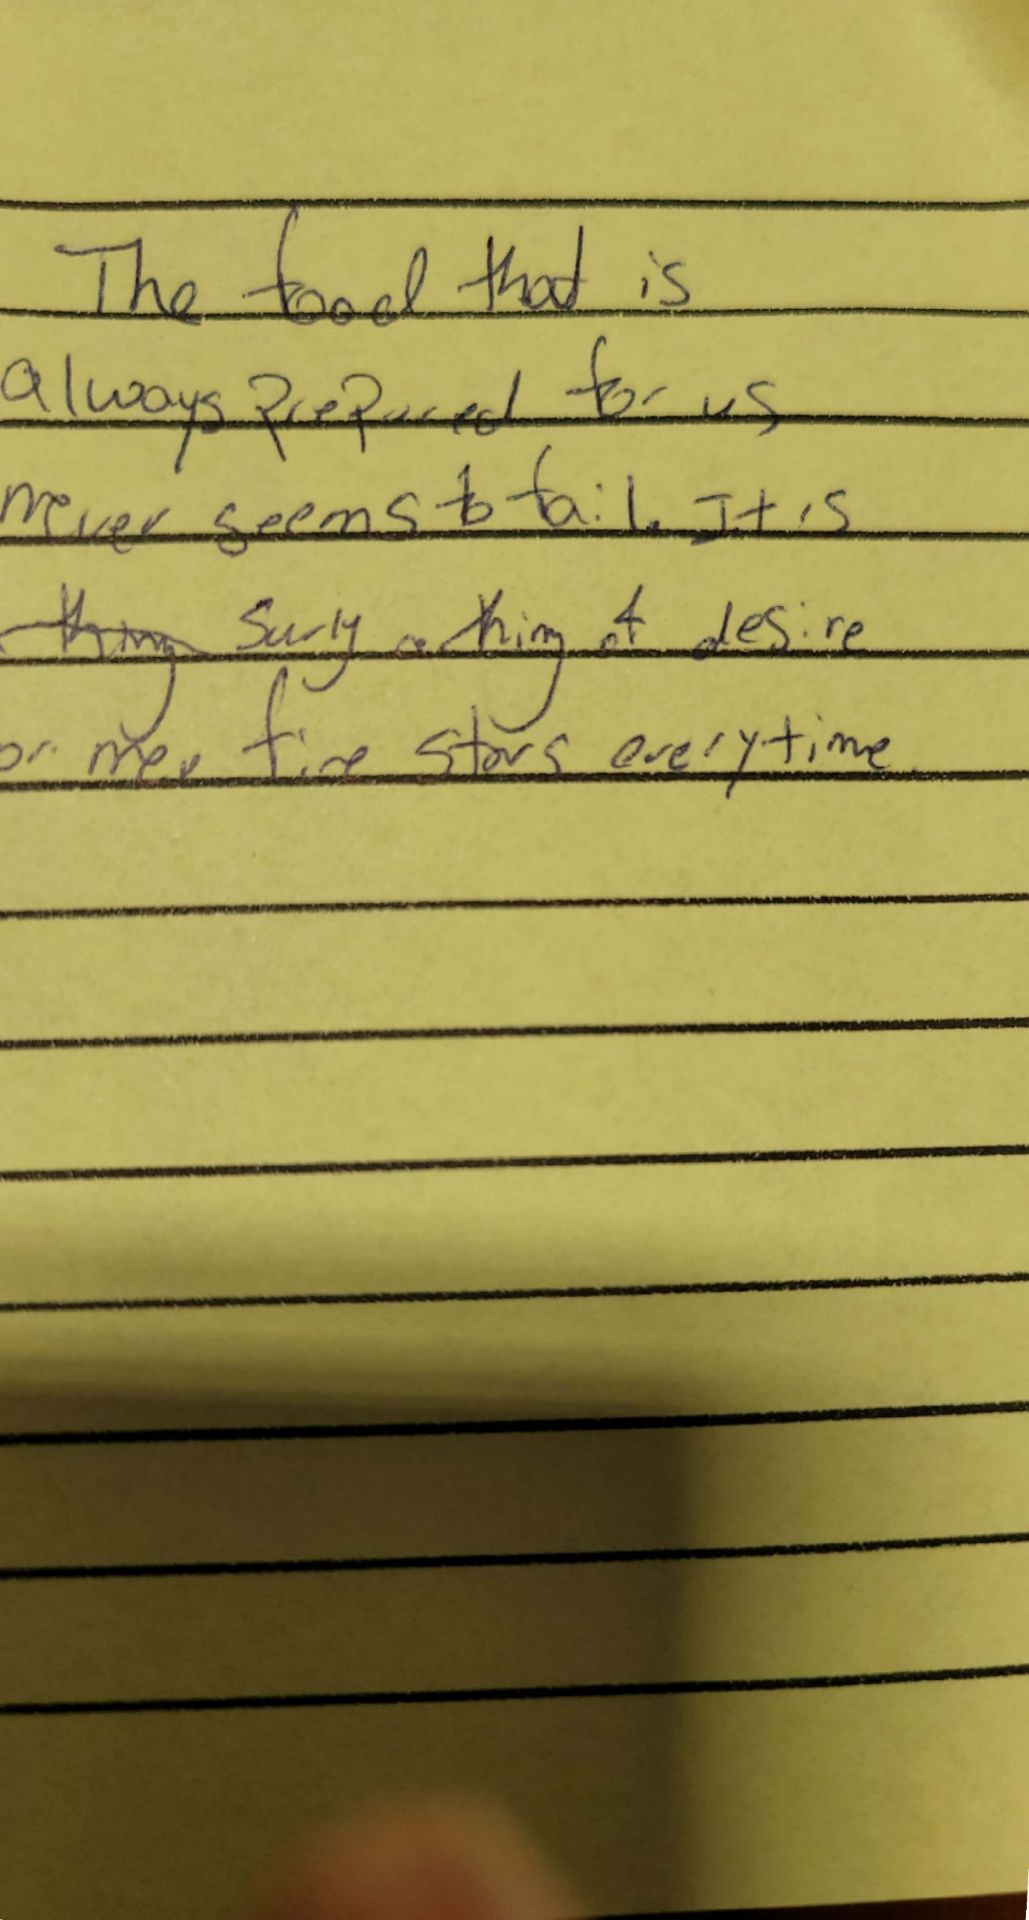 The food that is
always prepared for us
never seems to fail. It is
thing surly a thing of desire
or me, five stars everytime.